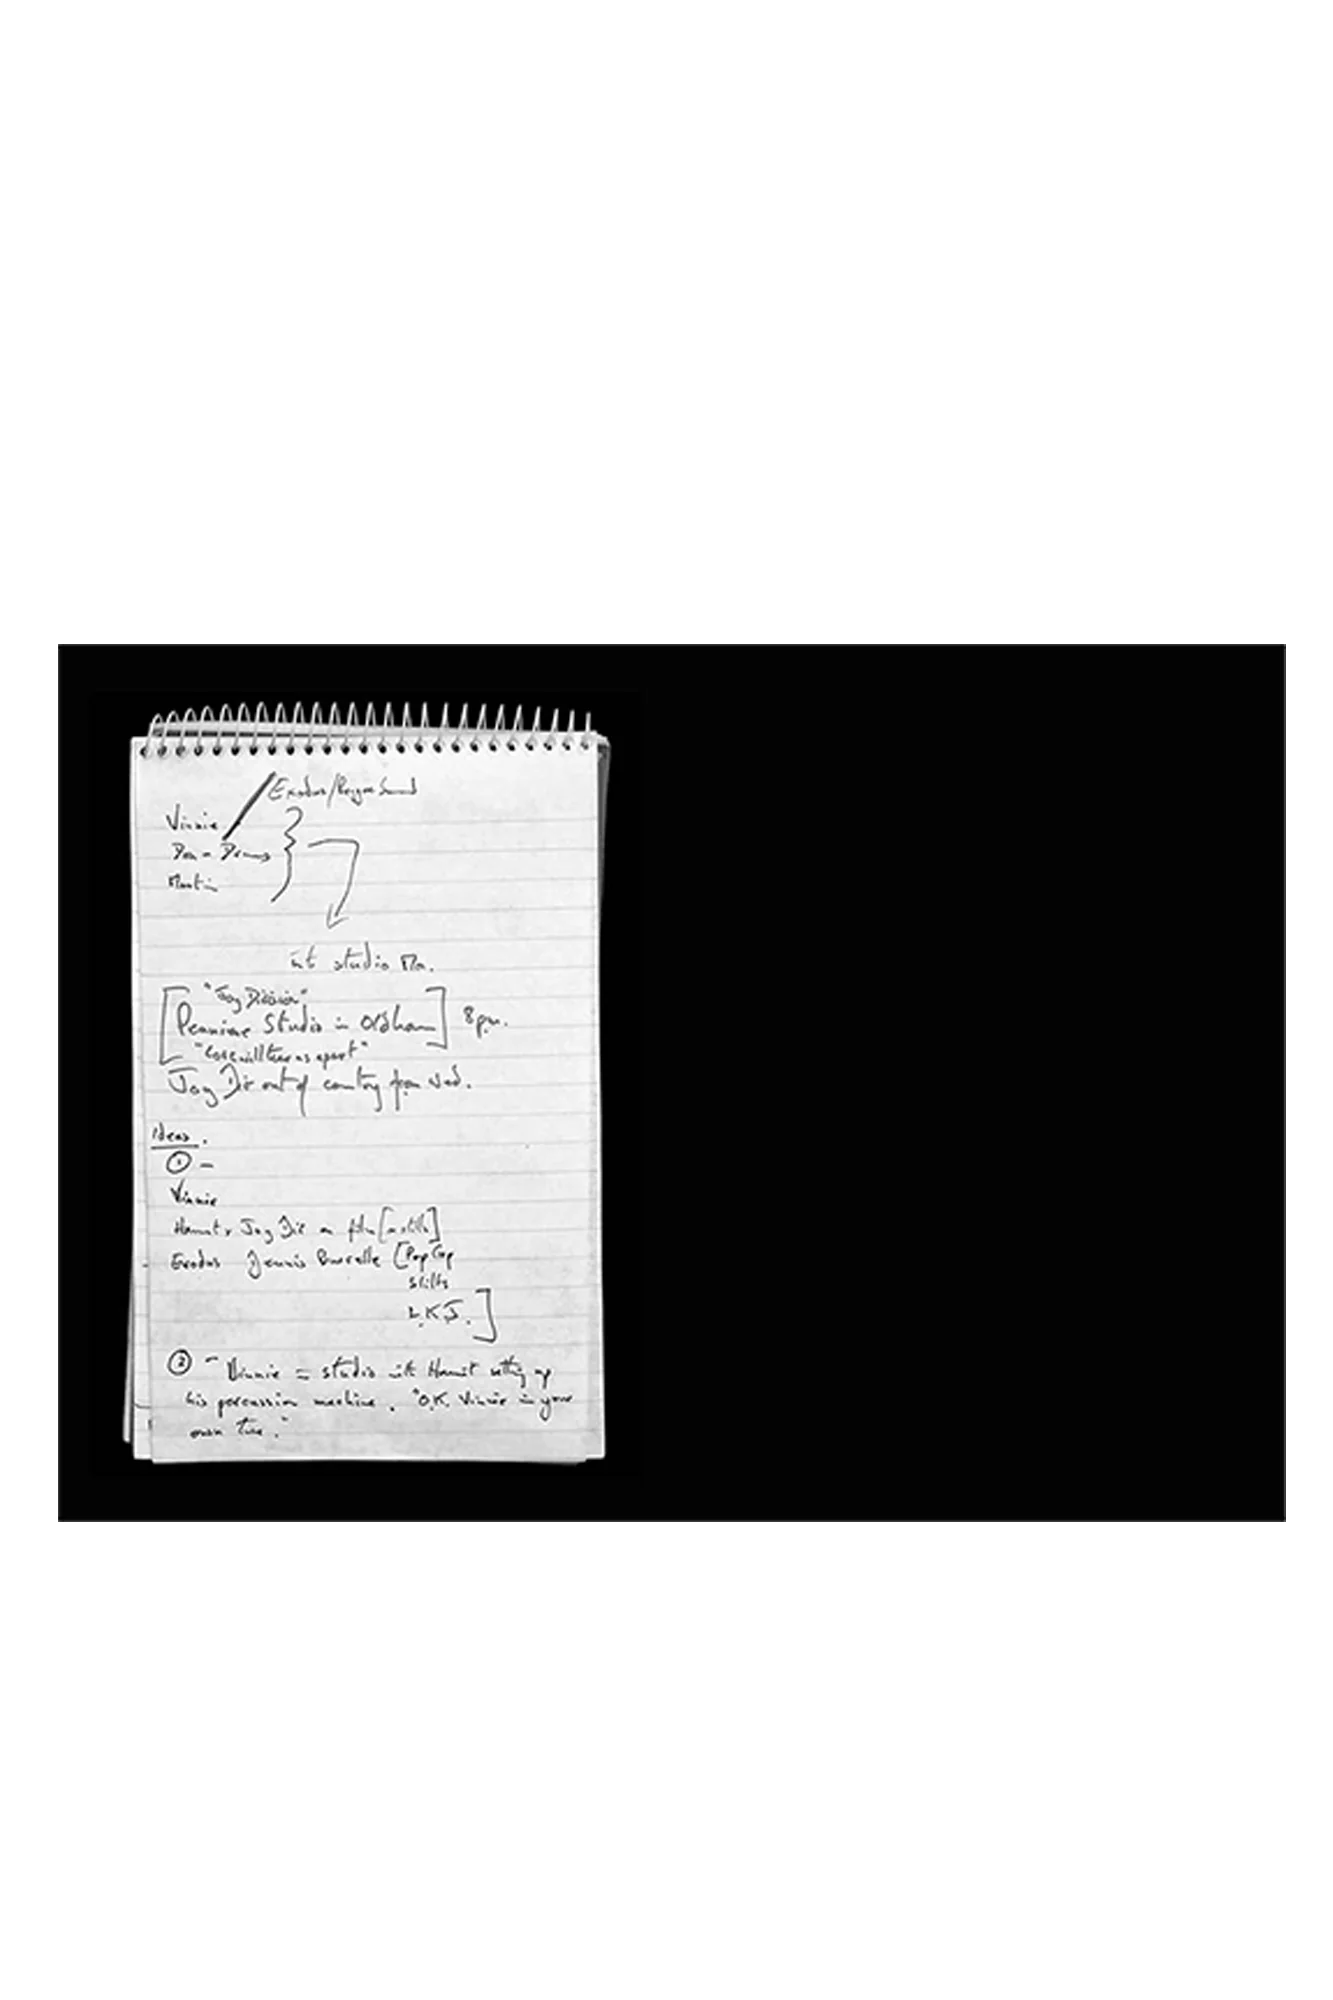 Exodus/Reggae Sound
Vinnie
Don - Drums
Martin
int studio Ma.
"Joy Division"
[Pennine Studio in Oldham] 8pm.
"Love will tear us apart"
Joy Div out of country from Wed.
Ideas.
① -
Vinnie
Hannet + Joy Div on film [+ stills]
Exodus Dennis Bovelle [Pop Grp
Slits
L.K.J.]
② - Vinnie = studio with Hannit setting up
his percussion machine. "O.K. Vinnie in your
own time."